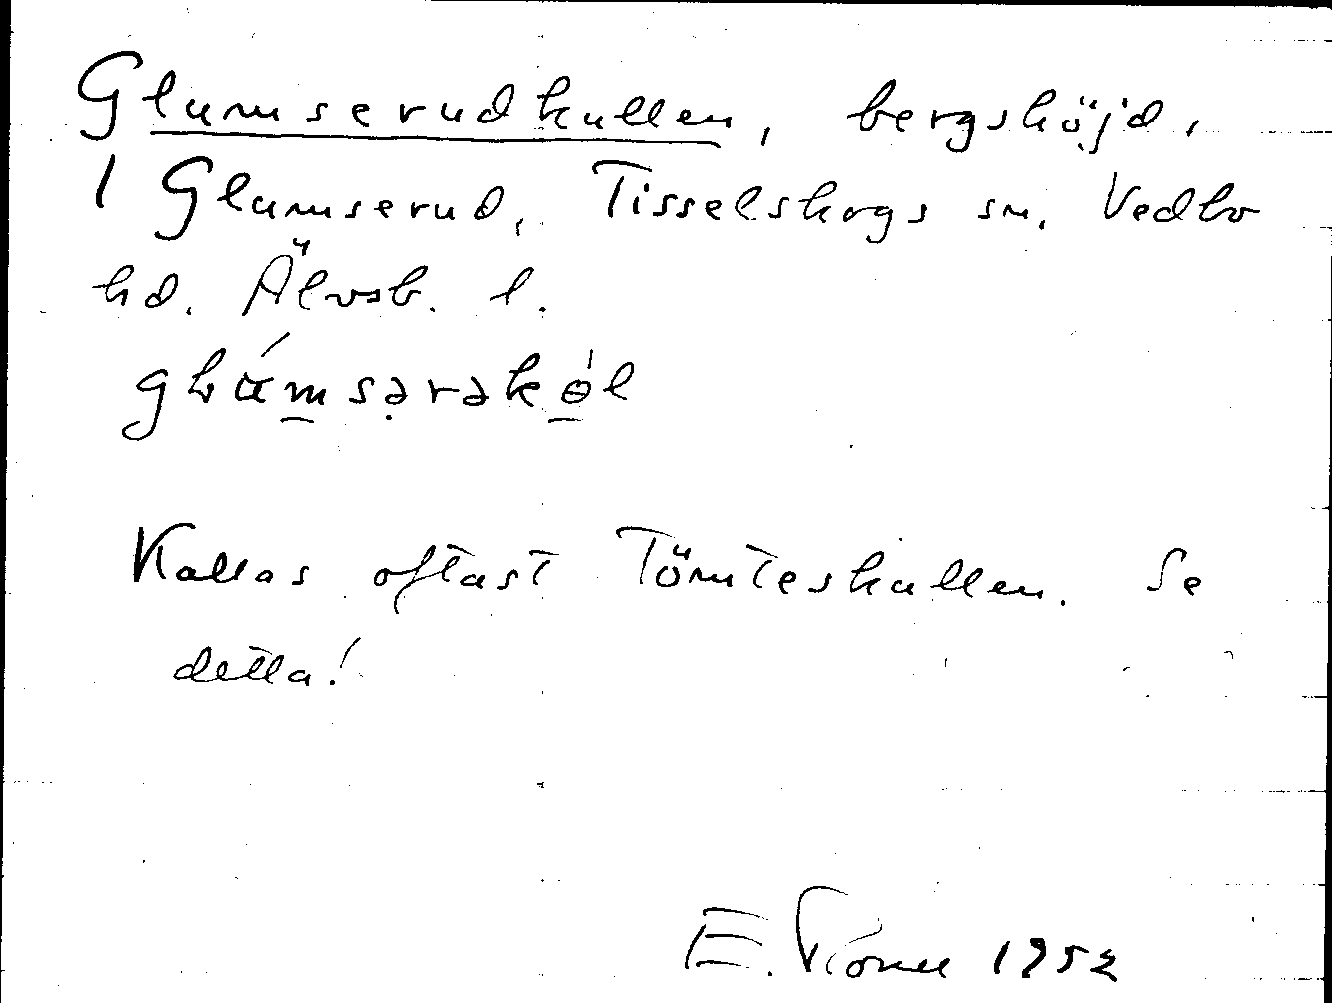 Glumserudkullen, bergshöjd,
1 Glumserud, Tisselskogs sn. Vedbo
hd. Älvsb. l.
Kallas oftast Tömteskullen. Se
detta!
E. 1952